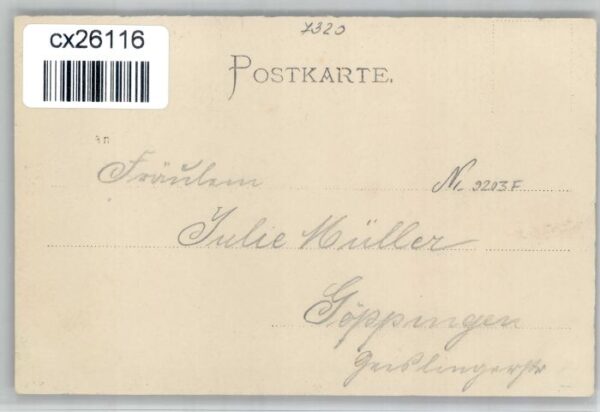 cx26116
7320
POSTKARTE.
An
Fräulein
N. 9203F
Julie Müller
Göppingen
Geislingerstr